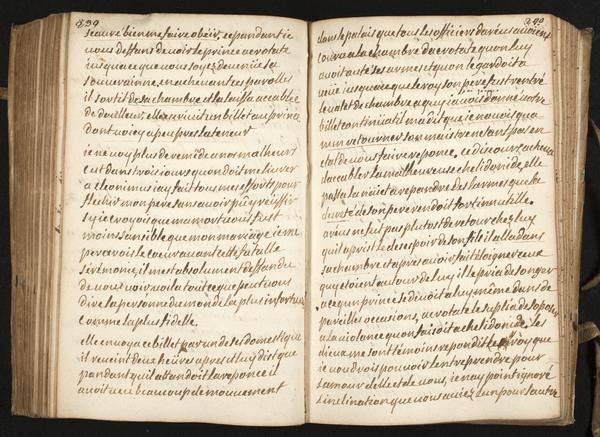 339
scauray bien me faire obeir, cependant ie
vous deffans de voir le prince acrotate
iusqua ce que vous soyez devenüe sa
souverainne, en achevant ces parolles
il sortit de sa chambre et la laissa accablée
de doulleur, elle escrivit un billet au prince
dont voicy a peu pres la teneur
ie ne voy plus de remede a nos malheurs
cest dans trois iours quon doit me livrer
a cleonimus iay fait tous mes efforts pour
flechir mon pere sans avoir pu y reüssir
sy ie croyois que ma mort vous fust
moins sansible que mon mariage ie me
percerois le coeur avant cette fatalle
seremonie, il mest absolument deffandu
de vous voir, voila tout ce que peut vous
dire la personne du monde la plus infortunée
comme la plus fidelle.
elle envoya ce billet par un de ses domestique
il revint deux heüres apres et luy dist que
pandant quil attandoit la reponce il
avoit veu beaucoup de mouvement
340
dans le palais que tous les officiers darcus avoient
couru a la chambre dacrotate quon luy
avoit auté ses armes et quon le gardoit a
veüe iusqua ce que le roy son pere fust rentré
le valet de chambre a quy iavois donné vostre
billet continüa til ma dit que ie navois qua
men retourner son maistre nestant pas en
etat de vous faire reponce. ce discours acheva
daccabler la malheureuse chelidonide, elle
passa la nüit a repandre des larmes que la
dureté de son pere rendoit fort inutille.
areus ne fut pas plutost de retour chez luy
quil aprist le desespoir de son fils il alla dans
sa chambre et apres avoir fait eloigner ceux
quy estoient autour de luy, il le pria de songer
a ce quun prince se devoit a luy mesme dans de
pareilles occasions, acrotate le suplia de soposer
a la violence quon faisoit a chelidonide. les
dieux me sont temoins repondit le roy que
ie voudrois pouvoir lentreprendre pour
lamour delle et de vous, ie nay point ignoré
linclination que vous aviez lun pour lautre